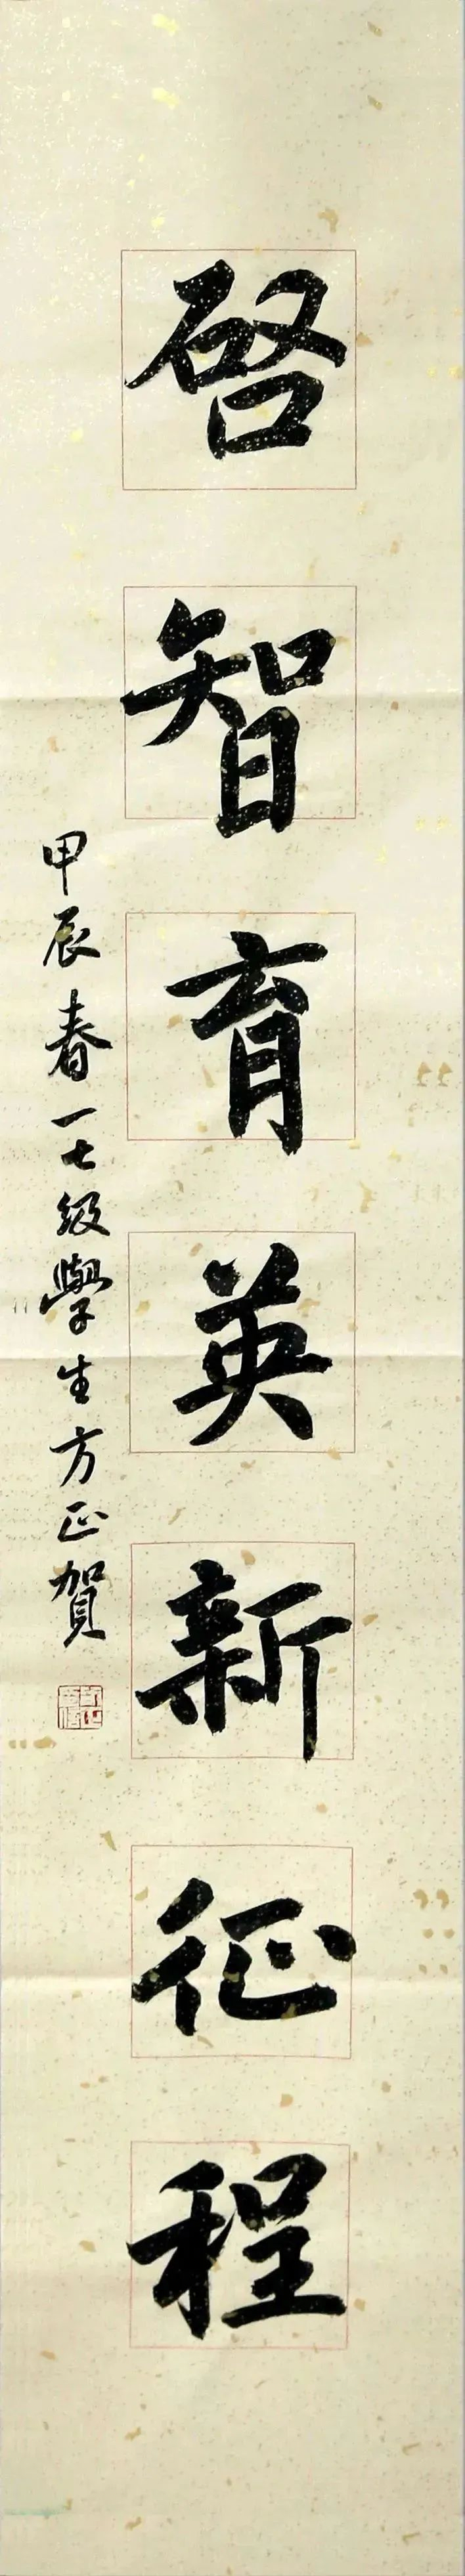 啓智育英新征程
甲辰春一七級學生方正賀